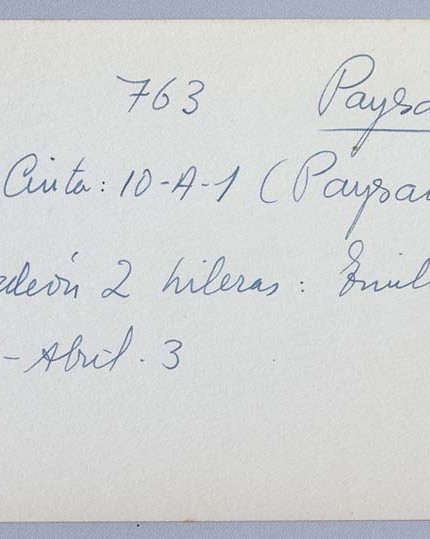 763 Paysa
Cinta: 10-A-1 (Paysan
rdeón 2 hileras: Emil
- Abril. 3